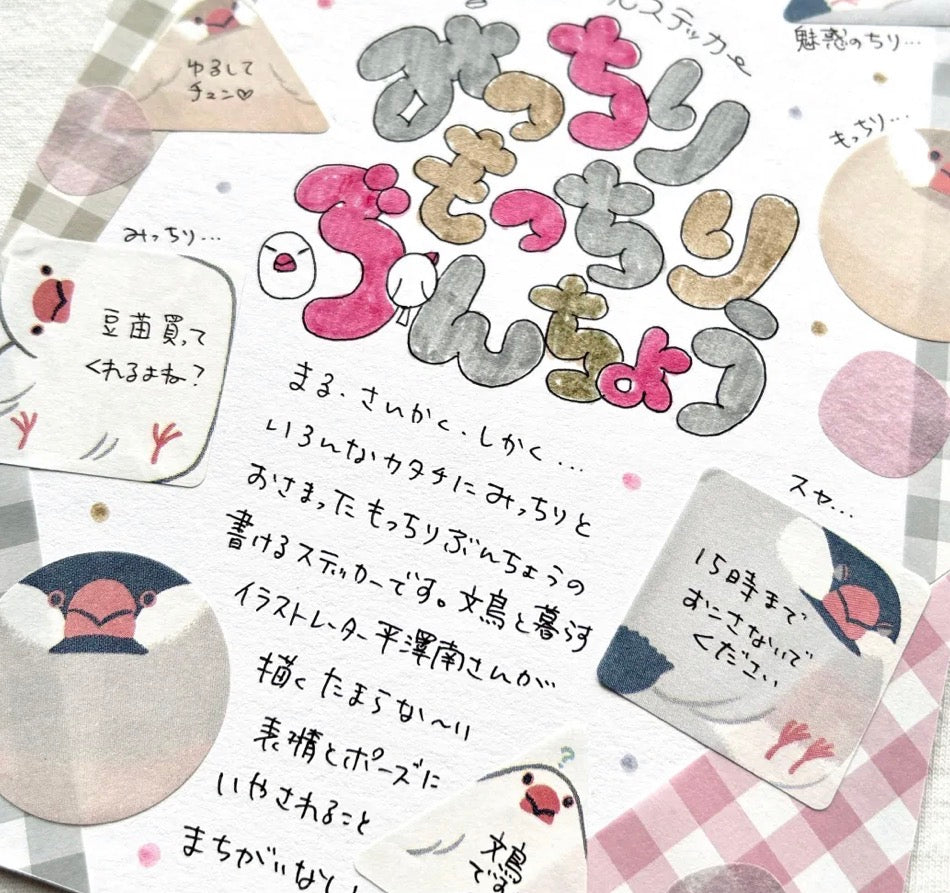 ルステッカー
魅惑のちり…
ゆるして
チュン♡
みっちり
もっちり…
もっちり
ぶんちょう
みっちり…
豆苗買って
くれるよね?
まる・さんかく・しかく…
いろんなカタチにみっちりと
おさまったもっちりぶんちょうの
書けるステッカーです。文鳥と暮らす
イラストレーター平澤南さんが
描くたまらな〜い
表情とポーズに
いやされること
まちがいなし!
スヤ…
15時まで
おこさないで
ください
?
文鳥
です